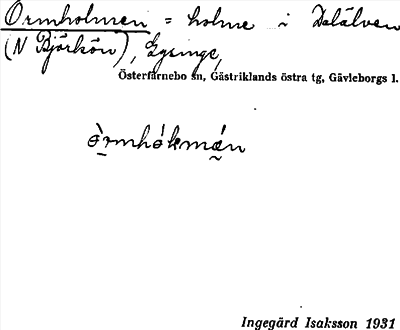 Ormholmen = holme i Dalälven
(N Björkön), Gysinge,
Österfärnebo sn, Gästriklands östra tg, Gävleborgs l.
òrmhólmán
Ingegärd Isaksson 1931